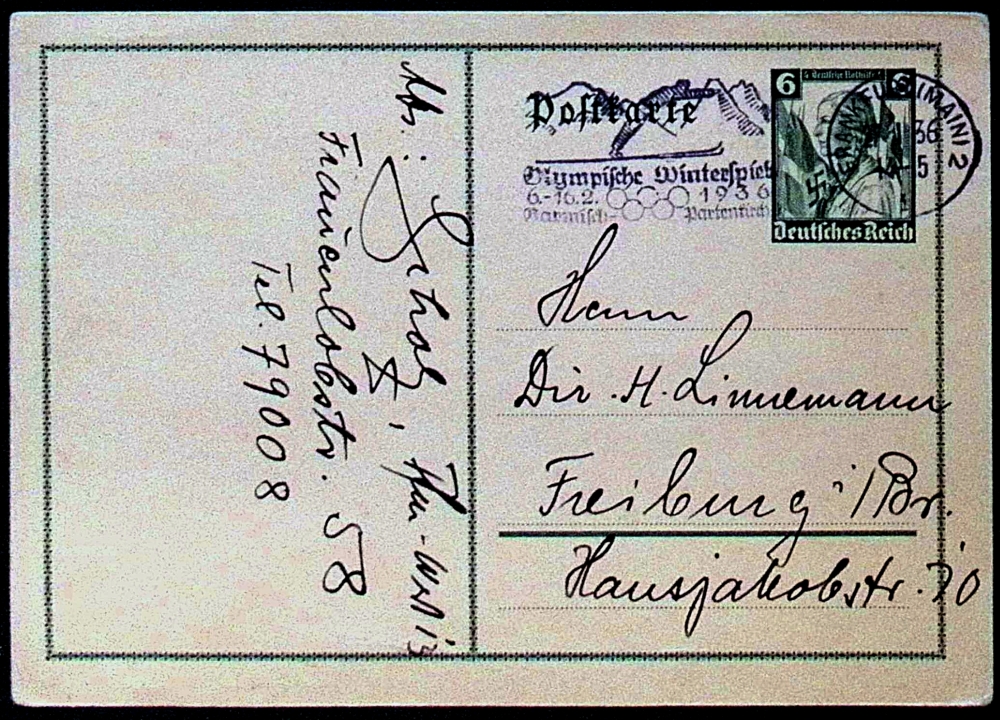 Postkarte
Olympische Winterspiele
6.-16.2. 1936
Garmisch- Partenkirch
6 6
Deutsches Reich
FRANKFURT (MAIN) 2
36
5
Herrn
Dir. H. Linnemann
Freiburg i/Br.
Hansjakobstr. 70
Abs.: Scholz, Ffm-West 13
Frauenlobstr. 58
Tel. 79008